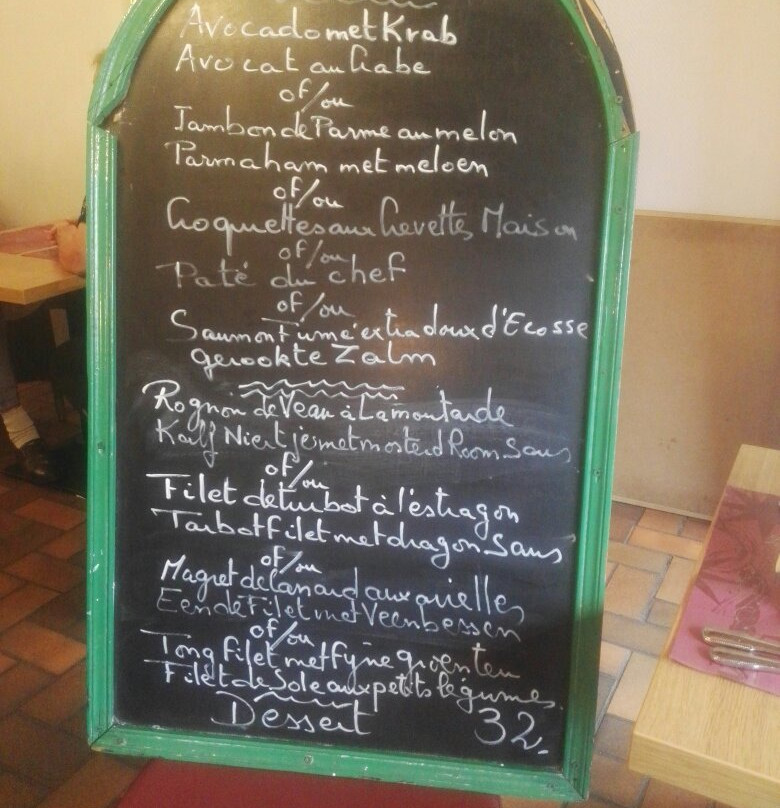 Avocado met Krab
Avocat au Crabe
of/ou
Jambon de Parme au melon
Parmaham met meloen
of/ou
Croquettes aux Crevettes Maison
of/ou
Paté du chef
of/ou
Saumon Fumé extra doux d'Ecosse
gerookte Zalm
Rognon de Veau à La moutarde
Kalf Niertjes met mosterd Room Saus
of/ou
Filet de turbot à l'éstragon
Tarbot filet met dragon Saus
of/ou
Magret de Canard aux airelles
Eende Filet met Veenbessen
of/ou
Tong filet met fyne groenten
Filet de Sole aux petits légumes
Dessert 32,